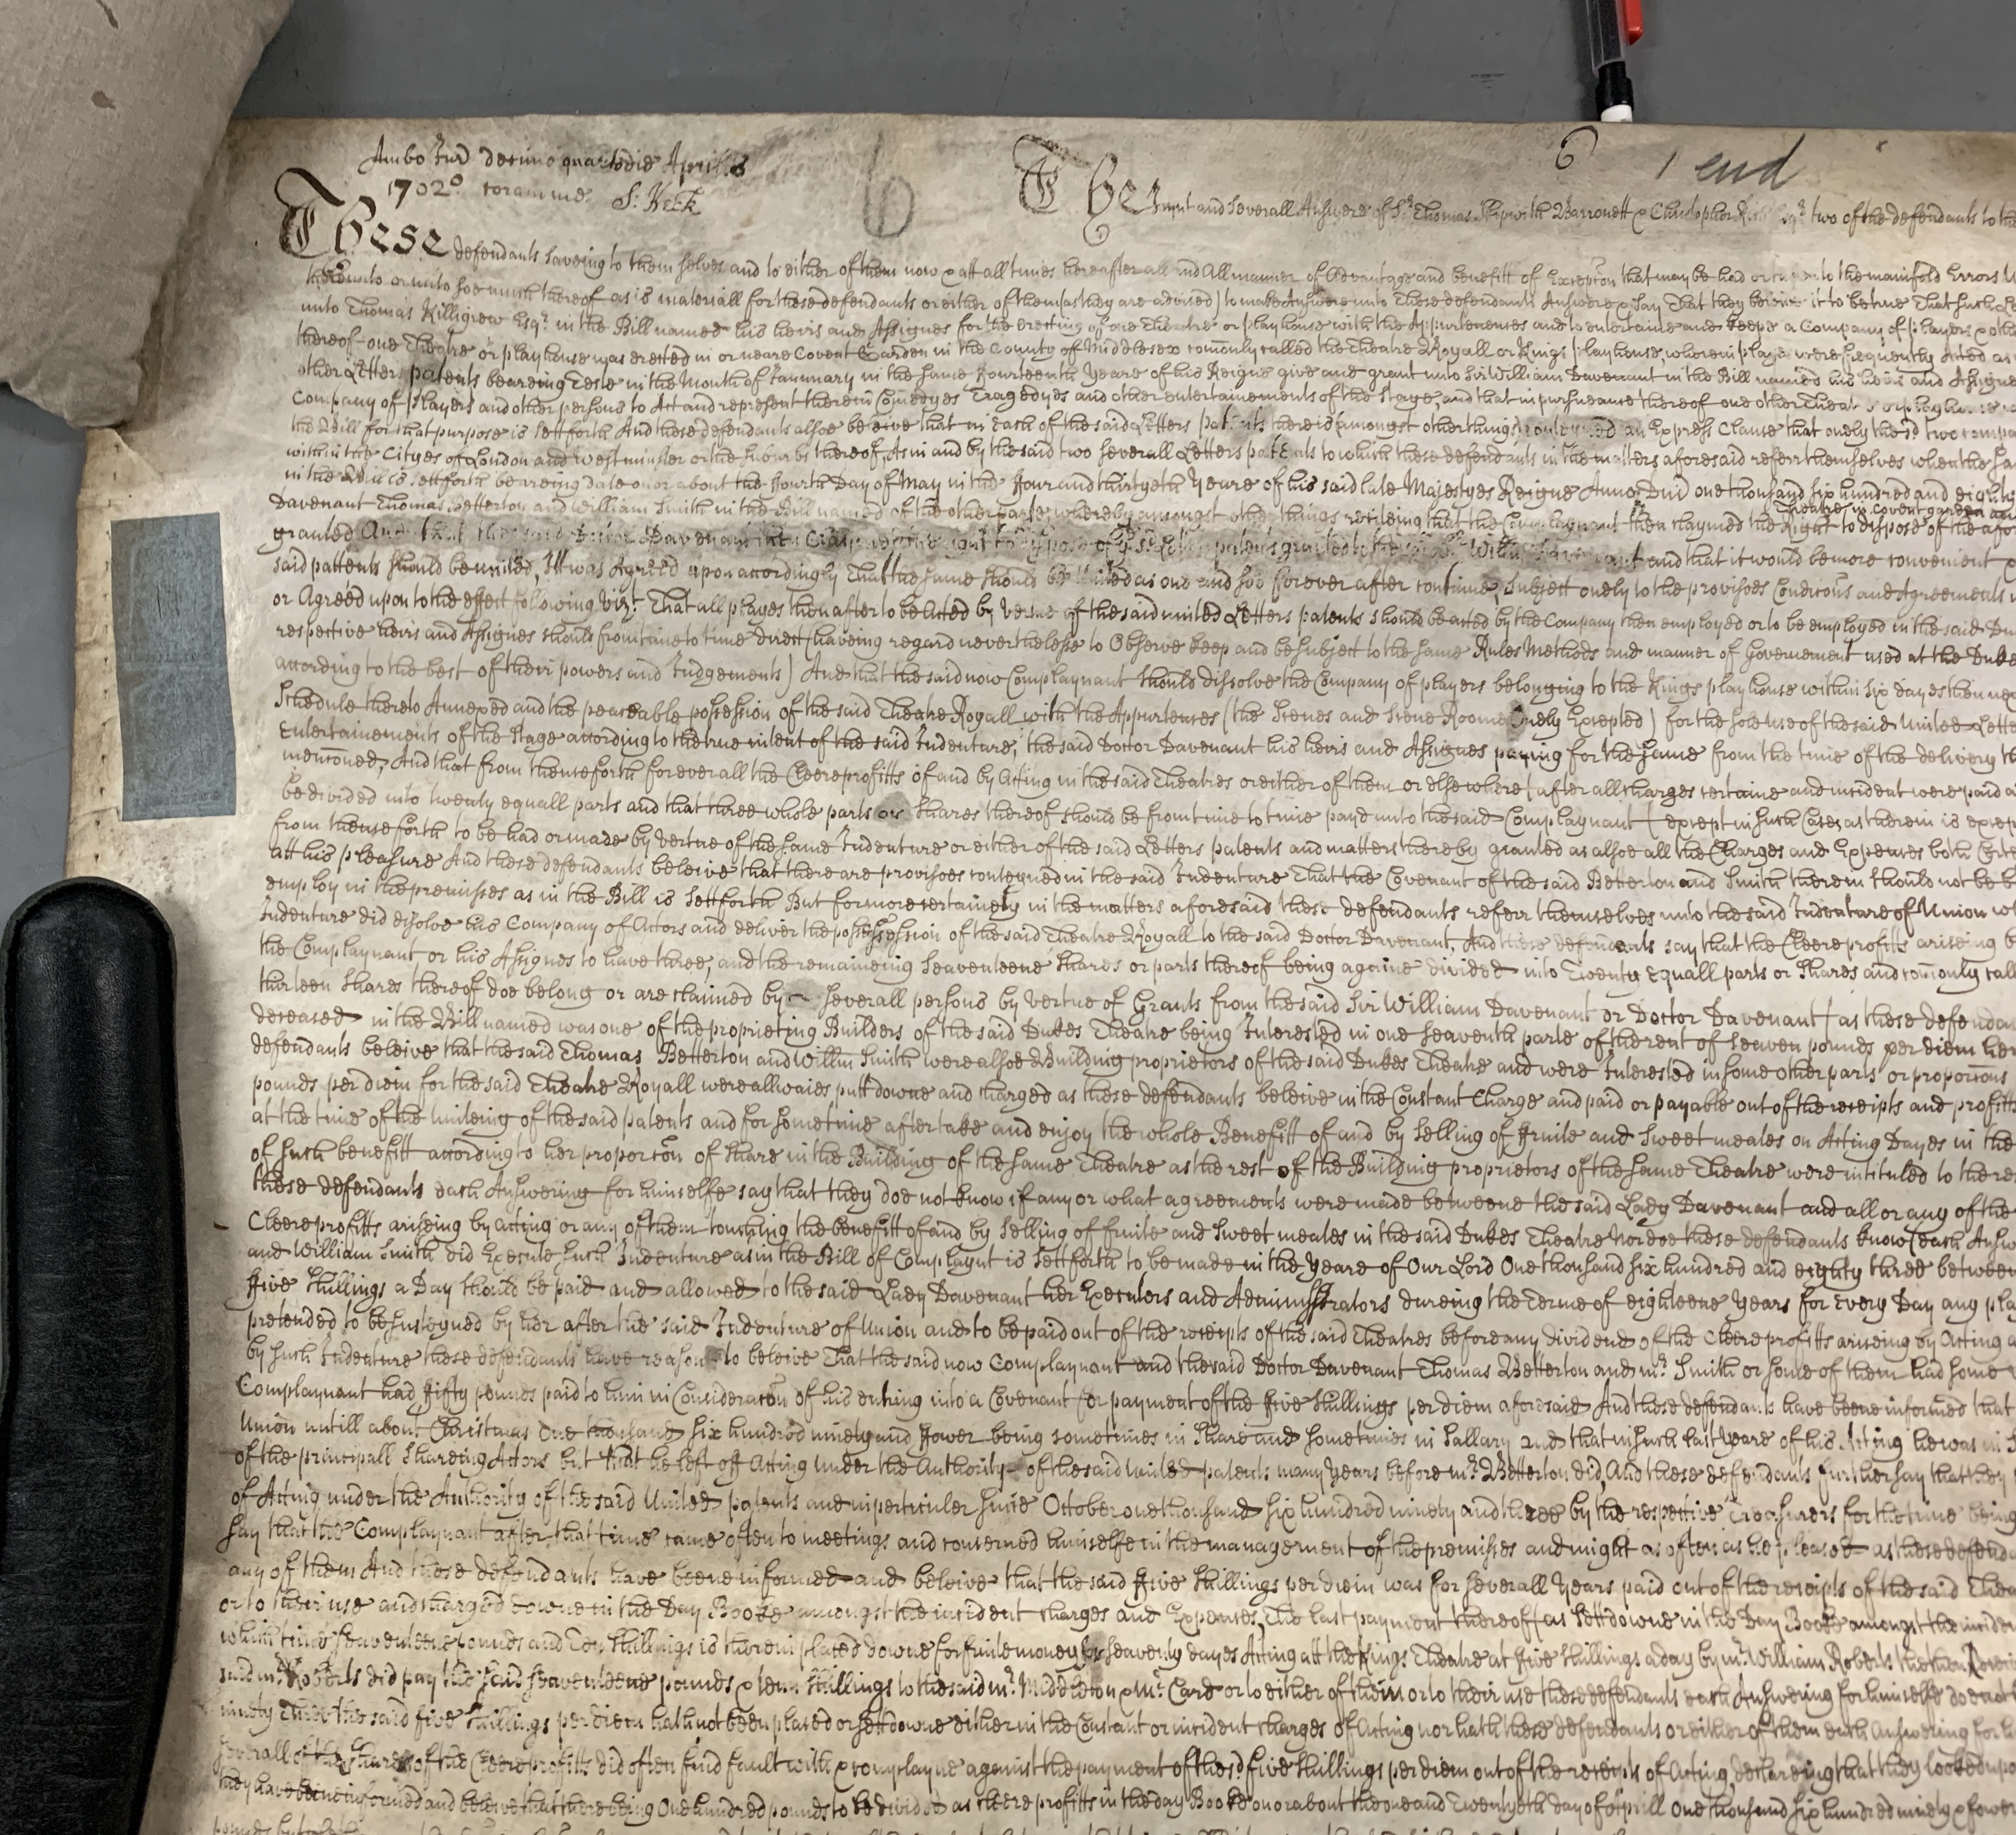 Ambo Jur decimo quarto die Aprilis
1702o coram me S: Keck
6
6 1 end
The Joynt and severall Answere of Sr Thomas Skipwith Barronett & Christopher Rich Esqr two of the defendants to the
These defendants saveing to them selves and to either of them now & att all times hereafter all and All manner of Advantage and benefitt of Excepcon that may be had or to the manifold Errors
thereunto or unto soe much thereof as is materiall for these defendants or either of them (as they are advised) to make Answere unto These defendants Answere & say That they beleive it to be true That such
unto Thomas Killigrew Esqr in the Bill named his heirs and Assignes for the erecting of one Theatre or playhouse with the Appurtenences and to entertaine and keepe a Company of players
thereof one Theatre or playhouse was erected in or neare Covent Garden in the County of Middlesex comonly called the Theatre Royall or Kings playhouse, wherein playes were frequently Acted
other Letters patents beareing Teste in the Month of Januuary in the same Fourteenth Yeare of his Reigne give and grant unto Sir William Davenant in the Bill named his heirs and Assignes
Company of players and other persons to Act and represent therein Comedyes Tragedyes and other entertainements of the Stage, and that in pursueance thereof one other Theatre or playhouse
the Bill for that purpose is settforth And these defendants alsoe beleive that in each of the said Letters patents there is (amongst other things) conteyned an Express Clause that onely the sd two
within the Cityes of London and Westminster or the suburbs thereof, As in and by the said two severall Letters patents to which these defendants in the matters aforesaid referr themselves when the
in the Bill is settforth beareing date on or about the Fourth Day of May in the Four and thirtyeth Yeare of his said late Majestyes Reigne Anno Dni one thousand six hundred and eighty
Theatre in Covent garden and
Davenant Thomas Betterton and William Smith in the Bill named of the other parte, whereby amongst other things reciteing that the Complaynant then claymed the right to dispose of the
granted And that the said Doctor Davenant then claymed the right to dispose of the Letters patents granted to the said Sr William Davenant and that it would be more convenient
said pattents should be united, Itt was Agreed upon accordingly That the same should be united as one and soe forever after continue, Subject onely to the provisoes Condicons and Agreements
or Agreed upon to the effect following vizt. That all playes then after to be Acted by vertue of the said united Letters patents should be acted by the Company then employed or to be employed in the said
respective heirs and Assignes should from time to time direct (haveing regard nevertheless to Observe keep and be subject to the same Rules Methods and manner of Governement used at the Dukes
according to the best of their powers and Judgements) And that the said now Complaynant should dissolve the Company of players belonging to the Kings playhouse within six dayes then
Schedule thereto Annexed and the peaceable possession of the said Theatre Royall with the Appurtences (the Scenes and Scene Roome Onely Excepted) for the sole use of the said United
Entertainements of the Stage according to the true intent of the said Indenture, the said Doctor Davenant his heirs and Assignes paying for the same from the time of the delivery
menconed, And that from thenceforth forever all the Cleere profitts of and by Acting in the said Theatres or either of them or elsewhere (after all charges certaine and incident were paid
be divided into twenty equall parts and that three whole parts or shares thereof should be from time to time payd unto the said Complaynant (except in such Cases as therein is
from thenceforth to be had or made by vertue of the same Indenture or either of the said Letters patents and matters thereby granted as alsoe all the Charges and Expences both
att his pleasure And these defendants beleive that there are provisoes conteyned in the said Indenture That the Covenant of the said Betterton and Smith therein should not be
employ in the premisses as in the Bill is settforth But for more certainety in the matters aforesaid these defendants referr themselves unto the said Indenture of Union
Indenture did disolve his Company of Actors and deliver the possession of the said Theatre Royall to the said Doctor Davenant, And these defendants say that the Cleere profitts ariseing
the Complaynant or his Assignes to have three, and the remaineing seaventeene shares or parts thereof being againe divided into Twenty Equall parts or shares and comonly
thirteen shares thereof doe belong or are claimed by severall persons by vertue of Grants from the said Sir William Davenant or Doctor Davenant (as these
deceased in the Bill named was one of the proprieting Builders of the said Dukes Theatre being Interested in one seaventh parte of the rent of seaven pounds per diem
defendants beleive that the said Thomas Betterton and Willm Smith were alsoe Building proprietors of the said Dukes Theatre and were Interested in some other parts or proporcons
pounds per diem for the said Theatre Royall were allwaies putt downe and charged as these defendants beleive in the Constant Charge and paid or payable out of the receipts and profitts
at the time of the uniteing of the said patents and for sometime after take and enjoy the whole Benefitt of and by selling of Fruite and Sweet meates on Acting Dayes in the
of such benefitt according to her proporcon of share in the Building of the same Theatre as the rest of the Building proprietors of the same Theatre were intituled to the
these defendants each Answering for himselfe say that they doe not know if any or what agreements were made betweene the said Lady Davenant and all or any of the
Cleere profitts ariseing by acting or any of them touching the benefitt of and by selling of fruite and Sweet meates in the said Dukes Theatre Nor doe these defendants know (each
and William Smith did Execute such Indenture as in the Bill of Complaynt is settforth to be made in the Yeare of Our Lord One thousand six hundred and eighty three between
Five shillings a Day should be paid and allowed to the said Lady Davenant her Executors and Administrators dureing the terme of eighteene Years for Every Day any
pretended to be susteyned by her after the said Indenture of Union and to be paid out of the receipts of the said Theatres before any dividend of the Cleere profitts ariseing by Acting
by such Indenture these defendants have reason to beleive That the said now Complaynant and the said Doctor Davenant Thomas Betterton and mr. Smith or some of them had some
Complaynant had Fifty pounds paid to him in Consideracon of his entring into a Covenant for payment of the Five shillings per diem aforesaid And these defendants have beene informed that
Union untill about Christmas One thousand six hundred ninety and Fower being sometimes in share and sometimes in Sallary and that in such last Yeare of his Acting he was in
of the principall Shareing Actors but that he left off Acting under the Authority of the said United patents many Years before mr. Betterton did, And these defendants further say that they
of Acting under the Authority of the said United patents and in perticuler since October one thousand six hundred ninety and three by the respective Treasurers for the time being
say that the Complaynant after that time came often to meetings and concerned himselfe in the management of the premisses and might as often as he pleased as these
any of them And these defendants have beene informed and beleive that the said Five shillings per diem was for severall Years paid out of the receipts of the said
or to their use and charged downe in the Day Booke amongst the incident charges and Expences, The last payment thereof (as settdowne in the Day Booke amongst the
which time seaventeene pounds and Ten shillings is therein placed downe for fruite money for seaventy dayes Acting att the Kings Theatre at Five shillings a day by mr. William Roberts the then
said mr. Roberts did pay the said seaventeene pounds & tenn shillings to the said mr. Middleton & mr. Card or to either of them or to their use these defendants each Answering for himselfe doe not
ninety Three the said five shillings per diem hath not been placed or settdowne either in the Constant or incident charges of Acting nor hath these defendants or either of them each Answering for
severall of the sharers of the Cleere profitts did often find fault with & complayne against the payment of the sd five shillings per diem out of the receipts of Acting, declareing that they looked
they have beene informed and beleive that there being One hundred pounds to be divided as cleere profitts in the day Booke on or about the one and Twentyeth day of Aprill One thousand six hundred ninety & fower